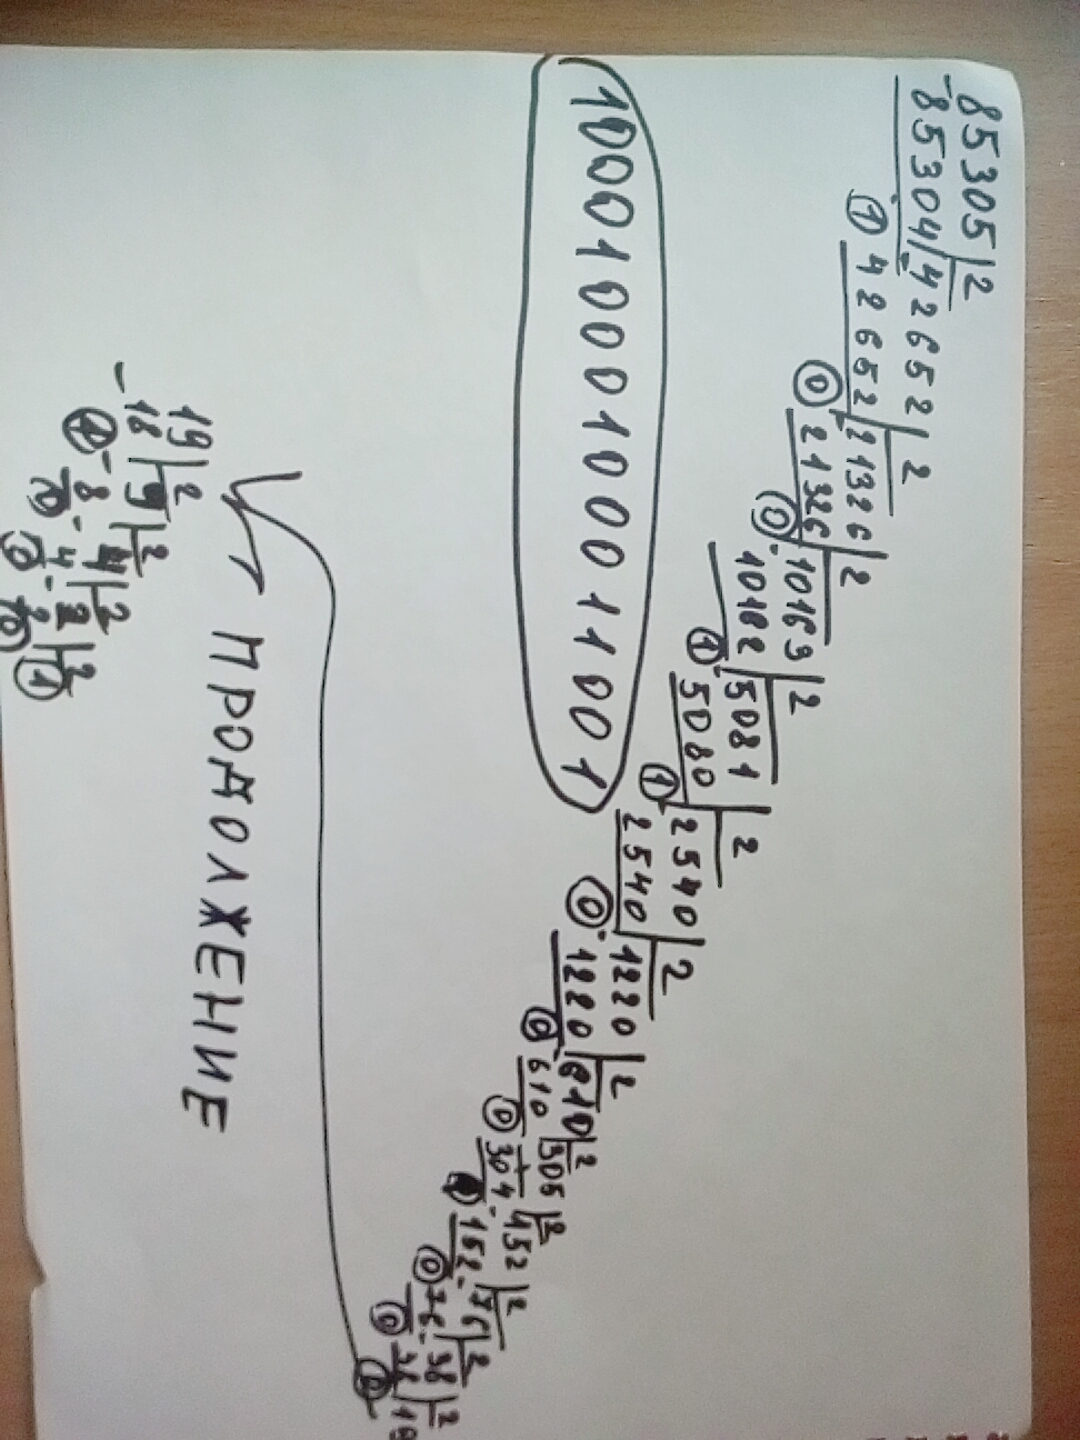 85305 2
-85304 42652 2
1 42652 21326 2
0 21326 10163 2
0 10162 5081 2
1 5080 2540 2
1 2540 1220 2
0 1220 610 2
0 610 305 2
0 304 152 2
152 76 2
0 76 38 2
0 38 19
1000100001000011001
ПРОДОЛЖЕНИЕ
19 2
-18 9 2
1 8 4 2
4 2 2
0 2 1